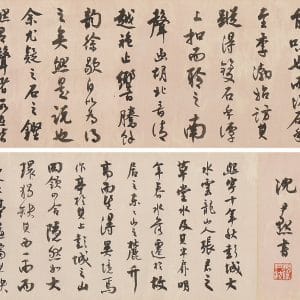 至李渤始訪其
蹤得雙石於潭
上扣而聆之南
聲函胡北音清
越枹止響騰餘
韻徐歇自以為得
之矣然是說也
余尤疑之石之鏗
沈尹默書
熙寧十年秋彭城大
水雲龍山人張君之
草堂水及其半扉明
年春水落遷於故
居之東東山之麓升
高而望得異境焉
作亭於其上彭城之山
岡嶺四合隱然如大
環獨缺其西一面而